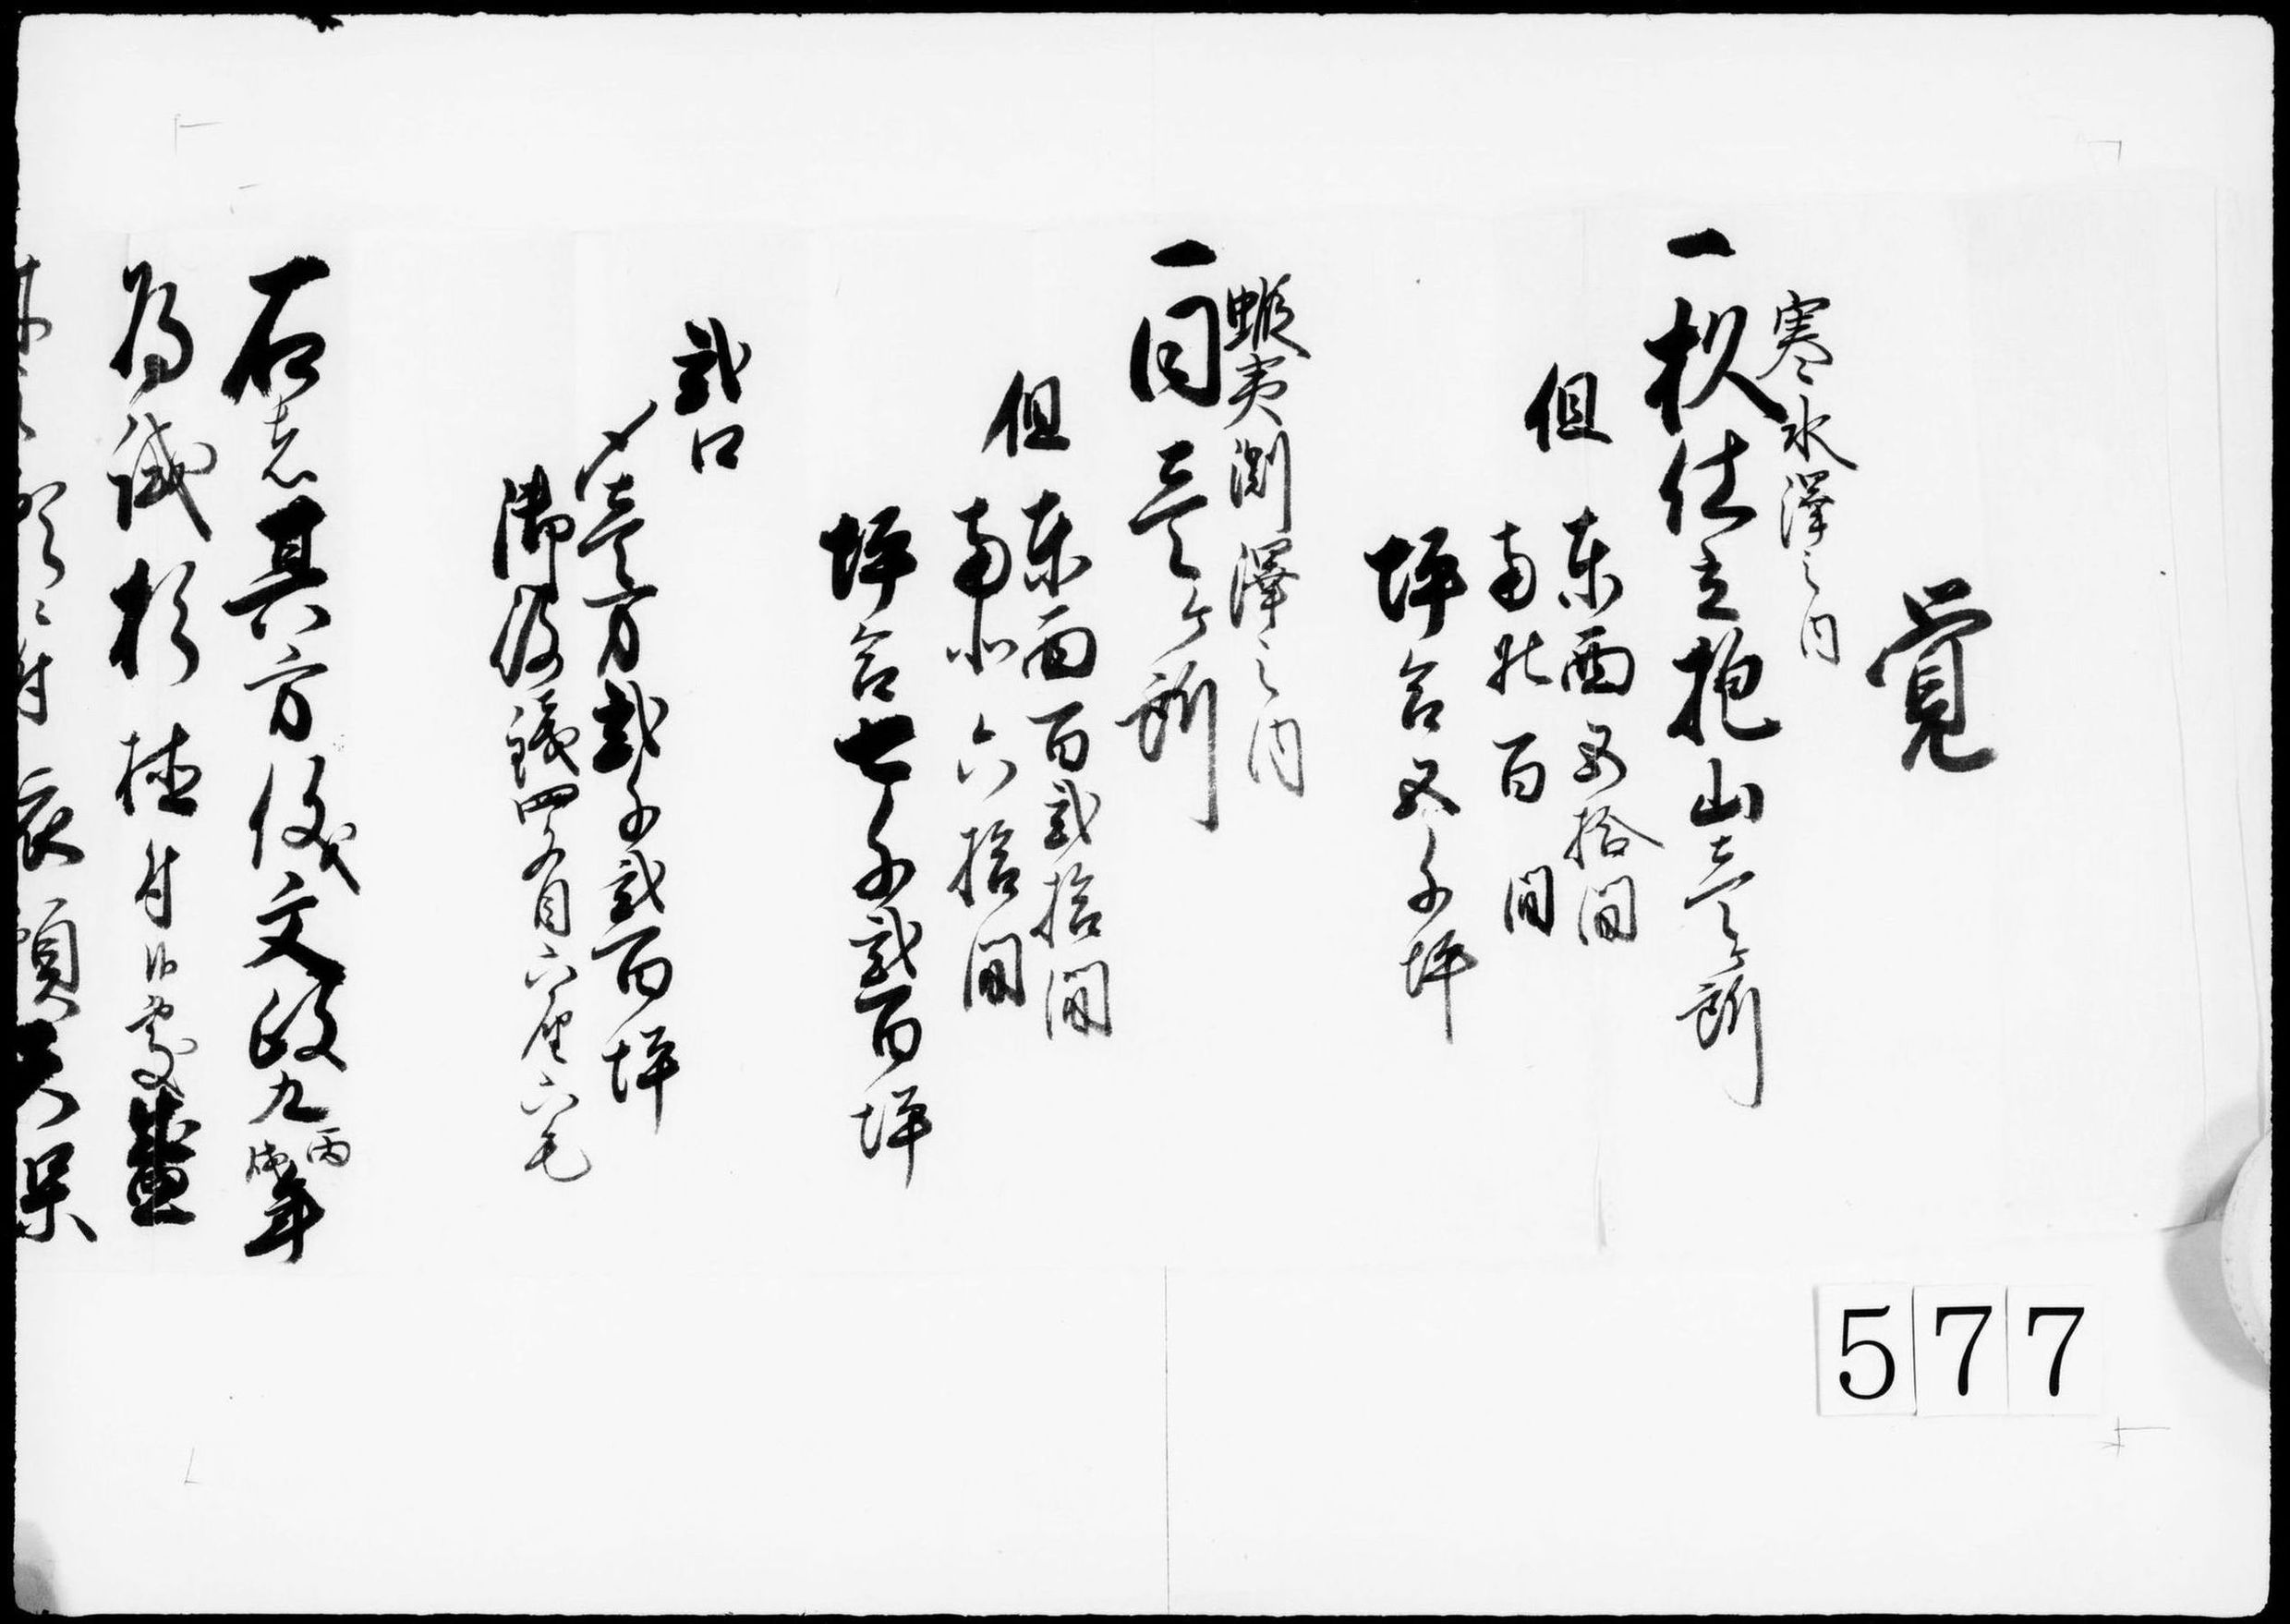 覚
寒水澤之内
一杉仕立抱山壱ヶ所
但
東西五拾間
南北百間
坪合五千坪
蝦夷渕澤之内
一同壱ヶ所
但
東西百弐拾間
南北六拾間
坪合七千弐百坪
弐口
〆壱万弐千弐百坪
御役銭四匁目六厘六毛
右者其方儀文政九丙戌年
為試杉植付
依頼
577